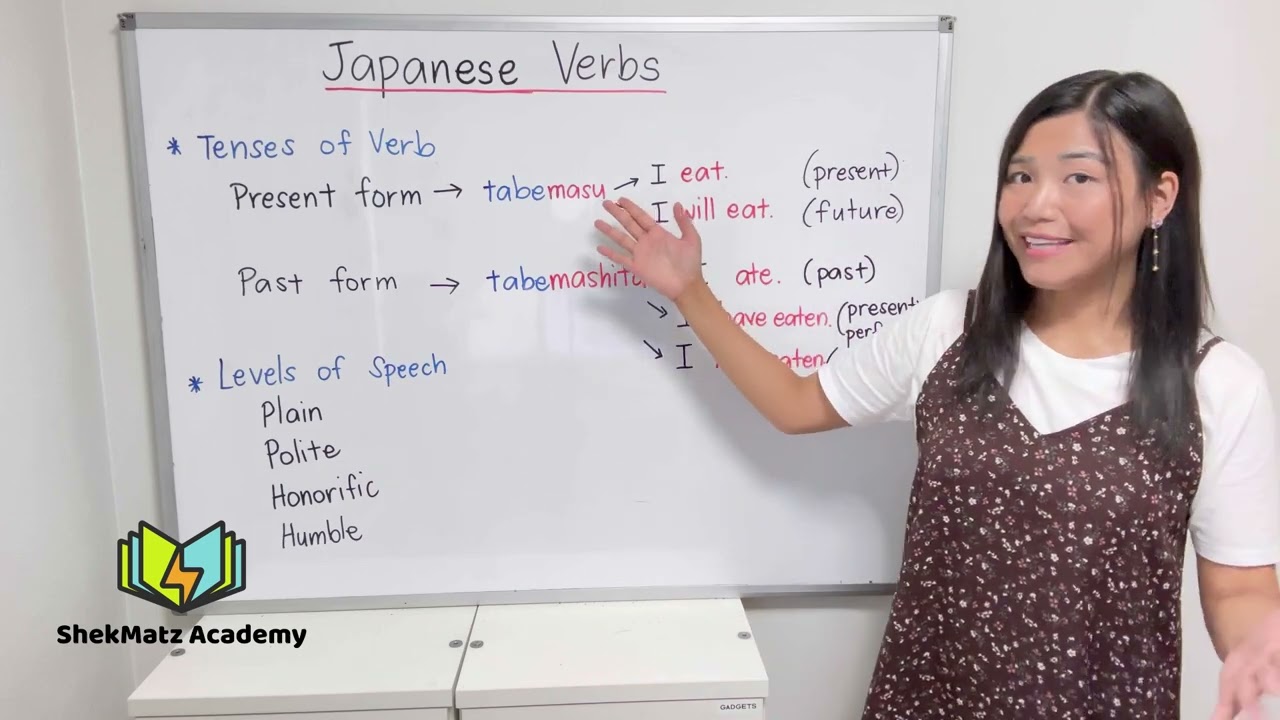 Japanese Verbs
* Tenses of Verb
Present form → tabemasu → I eat. (present)
I will eat. (future)
Past form → tabemashita ate. (past)
↘ I have eaten. (present
↘ I eaten (
* Levels of Speech
Plain
Polite
Honorific
Humble
ShekMatz Academy
GADGETS